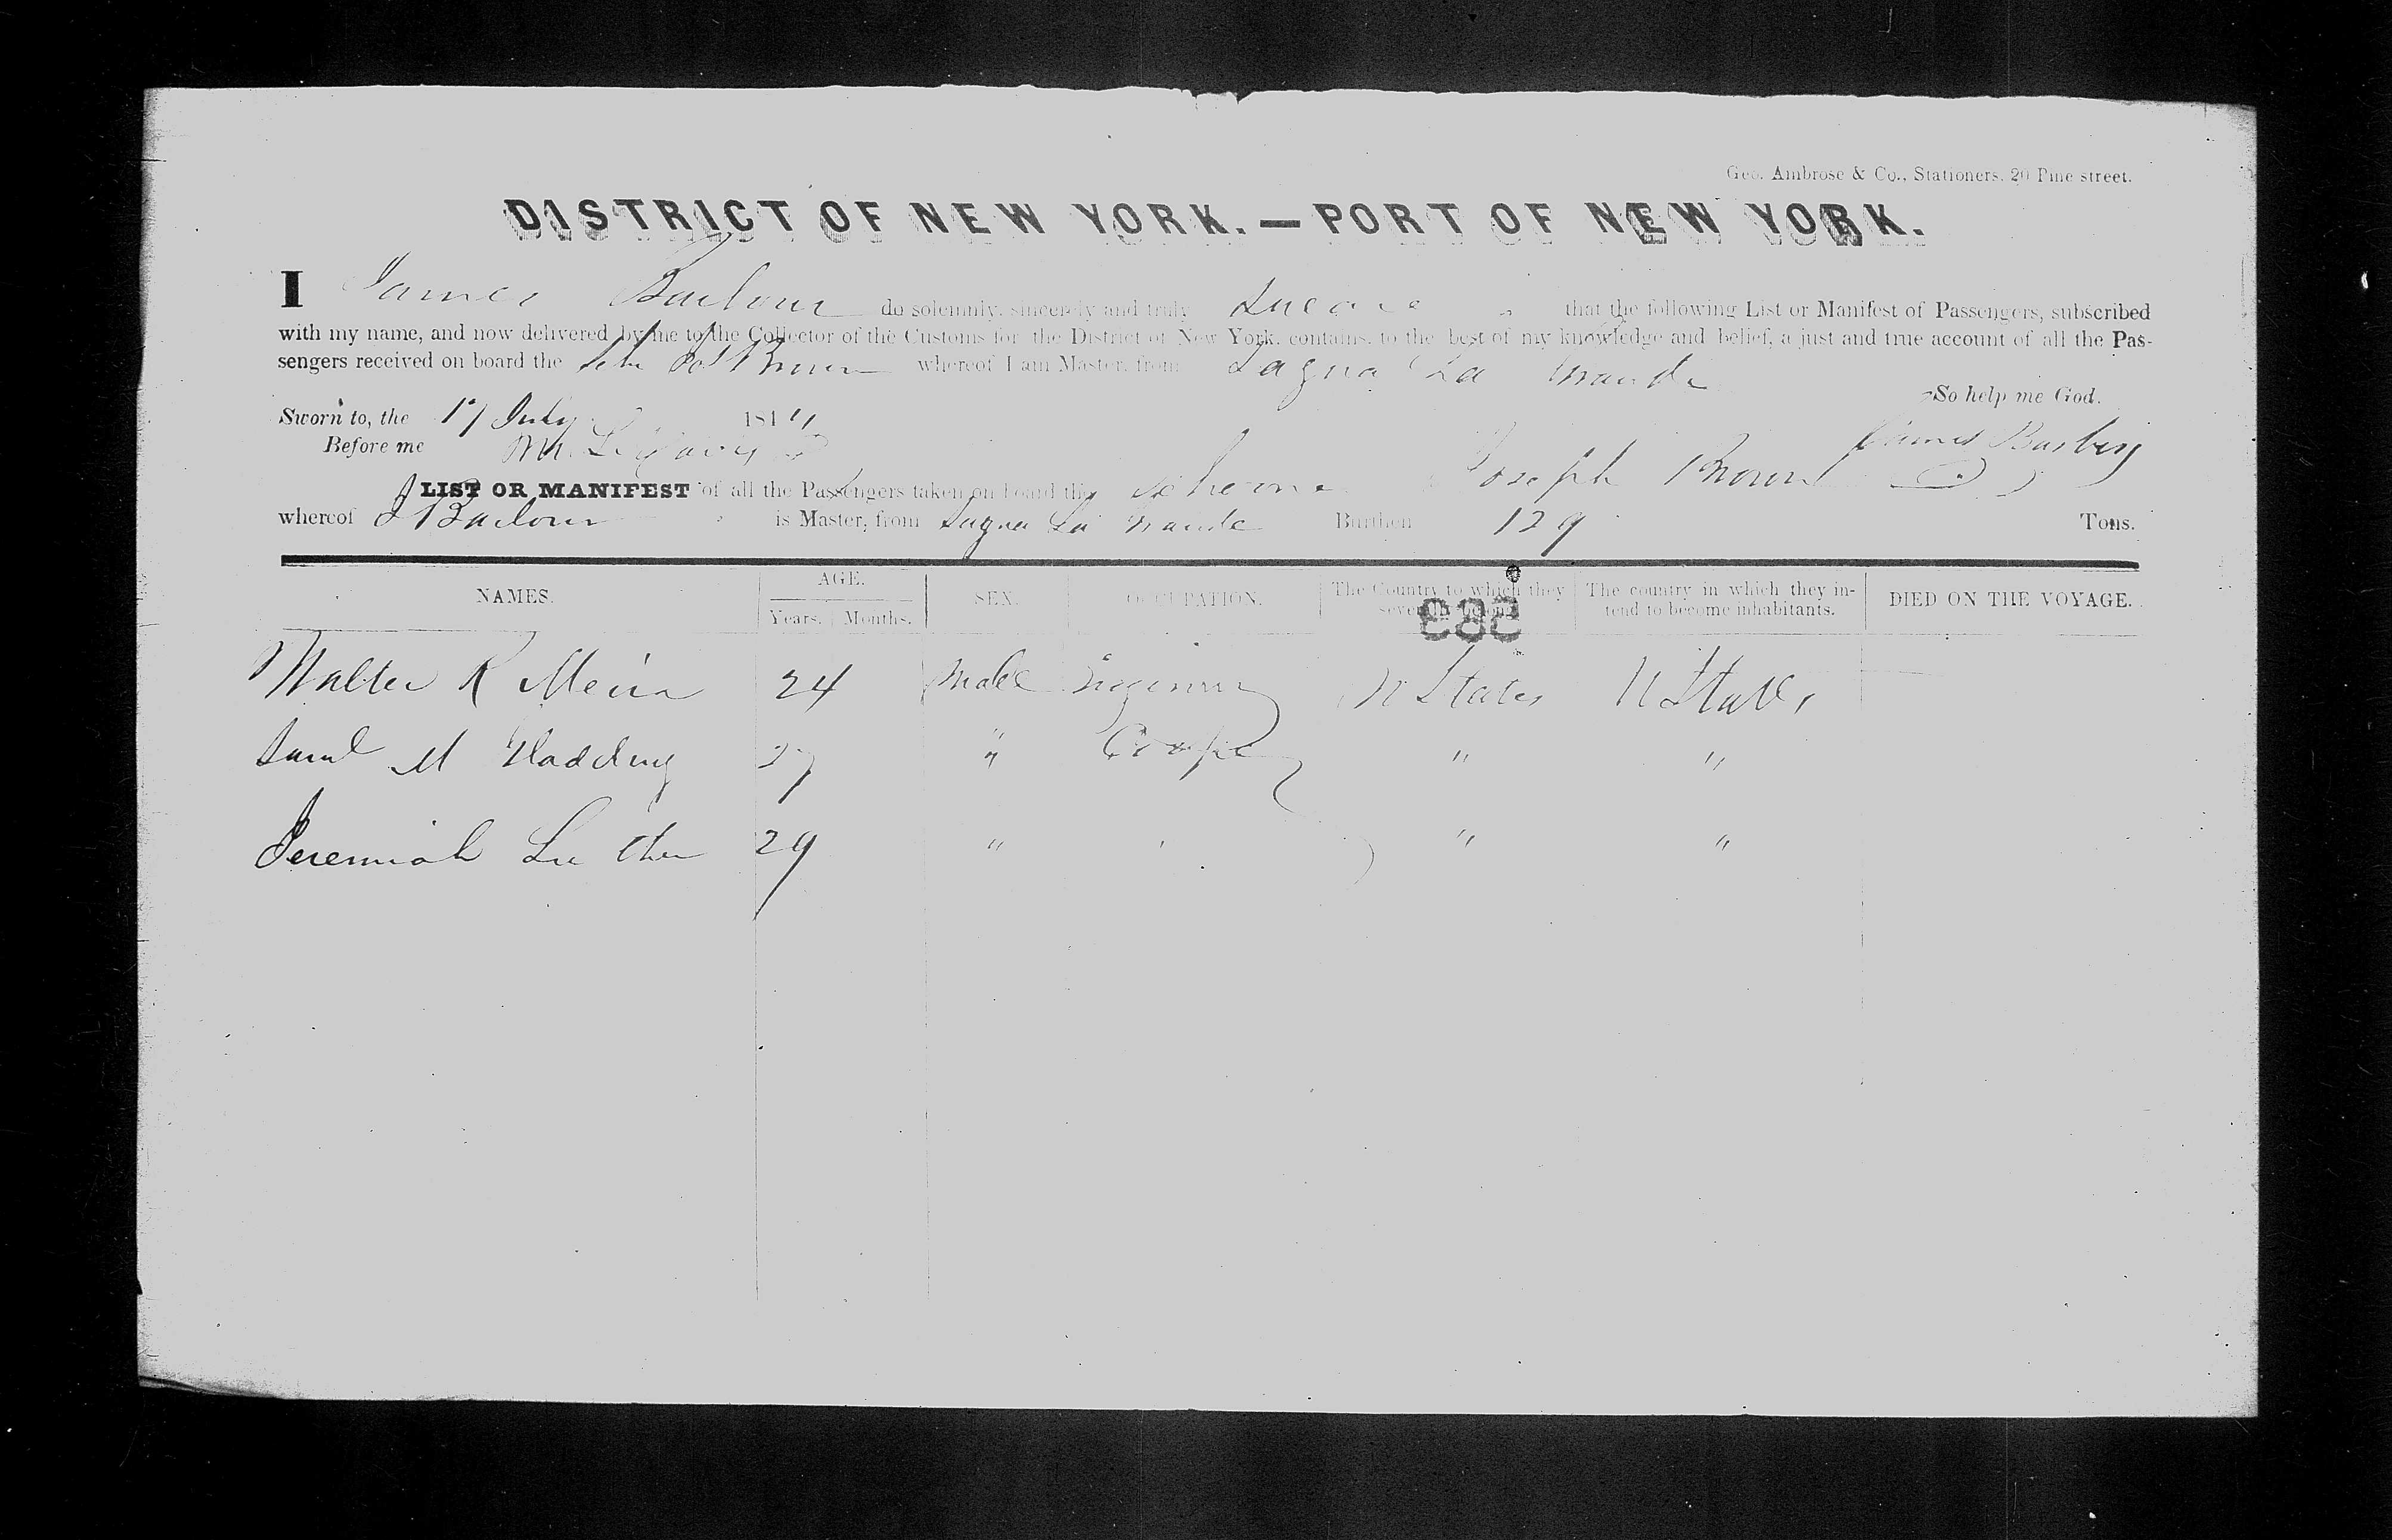 Geo. Ambrose & Co., Stationers. 20 Pine street.
DISTRICT OF NEW YORK.—PORT OF NEW YORK.
I James do solemnly, sincerely and truly that the following List or Manifest of Passengers, subscribed
with my name, and now delivered by me to the Collector of the Customs for the District of New York, contains, to the best of my knowledge and belief, a just and true account of all the Pas-
sengers received on board the whereof I am Master, from Sagua La Grande
So help me God.
Sworn to, the 17 July 184
Before me
James
LIST OR MANIFEST of all the Passengers taken on board the Joseph Brown
whereof J is Master, from Sagua La Grande Burthen 129 Tons.
NAMES. AGE. Years. Months. SEX. OCCUPATION. The Country to which they severally belong. The country in which they in-tend to become inhabitants. DIED ON THE VOYAGE.
583
Walter R 24 male Engineer U States U States
Saml M Gladding 27 " " "
Jeremiah Luther 29 " " "